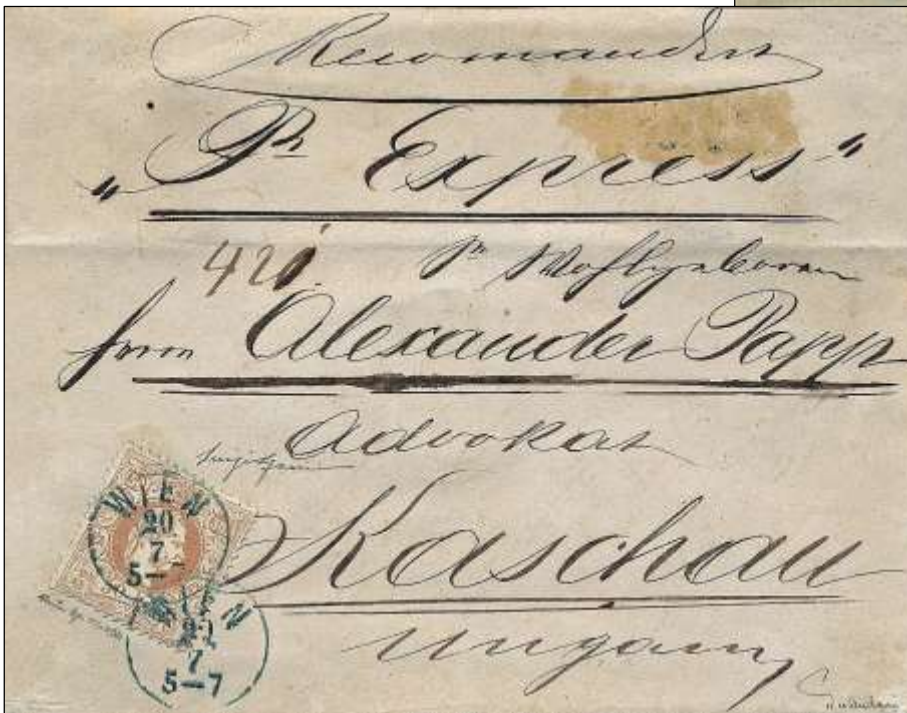 Recomandirt
"Pr Express"
421. Sr Wohlgeboren
Herrn Alexander Papp
Advokat
Kaschau
Ungarn
WIEN
20
7
5–
WIEN
20
7
5–7